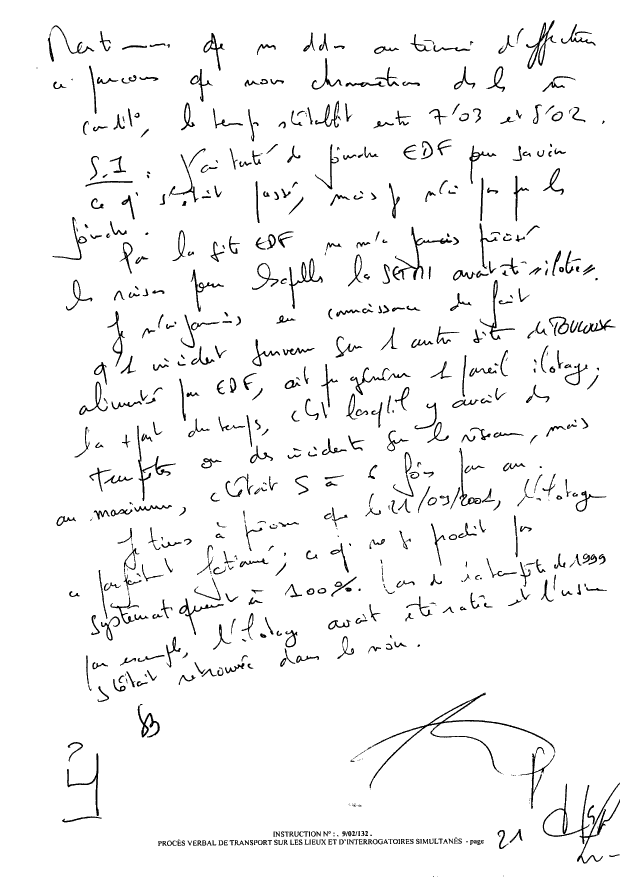 que nous demandons au témoin d'effectuer
ce parcours que nous chronométrons dans les
condit°, le temps s'établit entre 7'03 et 8'02.
S.I : J'ai tenté de joindre EDF pour savoir
ce qi s'était passé, mais je n'ai pas pu les
joindre.
Par la suite EDF ne m'a jamais précisé
les raisons pour lesquelles la SETMI avait été "ilotée".
Je n'ai jamais eu connaissance du fait
q'1 incident survenu sur 1 autre site de TOULOUSE
alimenté par EDF, ait pu générer 1 pareil ilotage;
la + part du temps, c'est lorsqu'il y avait des
tempêtes ou des incidents sur le réseau, mais
au maximum, c'était 5 à 6 fois par an.
Je tiens à préciser que le 21/09/2001, l'ilotage
a parfait fctionné; ce qi ne se produit pas
systématiquemt à 100%. Lors de la tempête de 1999
par exemple, l'ilotage avait été ratée et l'usine
s'était retrouvée dans le noir.
INSTRUCTION N° : . 9/02/132 .
PROCÈS VERBAL DE TRANSPORT SUR LES LIEUX ET D'INTERROGATOIRES SIMULTANÉS - page 21